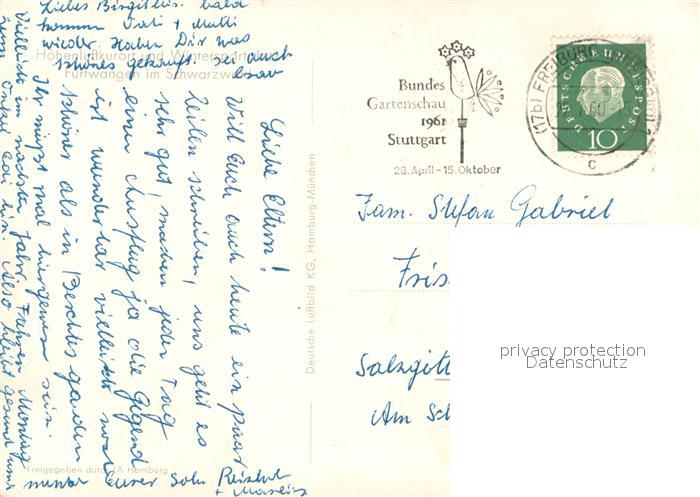 Liebes Birgitlein. bald
kommen Vati + Mutti
wieder. Haben Dir was
schönes gekauft. sei auch
brav
Höhenluftkurort und Wintersportplatz
Furtwangen im Schwarzwald
Liebe Eltern!
Will Euch auch heute ein paar
Zeilen schreiben, uns geht es
sehr gut, machen jeden Tag
einen Ausflug ja die Gegend
ist wunderbar vielleicht noch
schöner als in Berchtesgaden
Ihr müßt mal hier gewesen sein.
Vielleicht im nächsten Jahr. Fahren Montag
zum Onkel Adi hin. Also bleibt gesund und
munter Eurer Sohn Reinhold
+ Marlies
Freigegeben durch LA Hamburg
Deutsche Luftbild KG, Hamburg-München
Bundes
Gartenschau
1961
Stuttgart
28. April - 15. Oktober
(17b) FREIBURG
60
c
DEUTSCHE BUNDESPOST
10
Fam. Stefan Gabriel
Fris
Salzgitt
Am Sch
privacy protection
Datenschutz